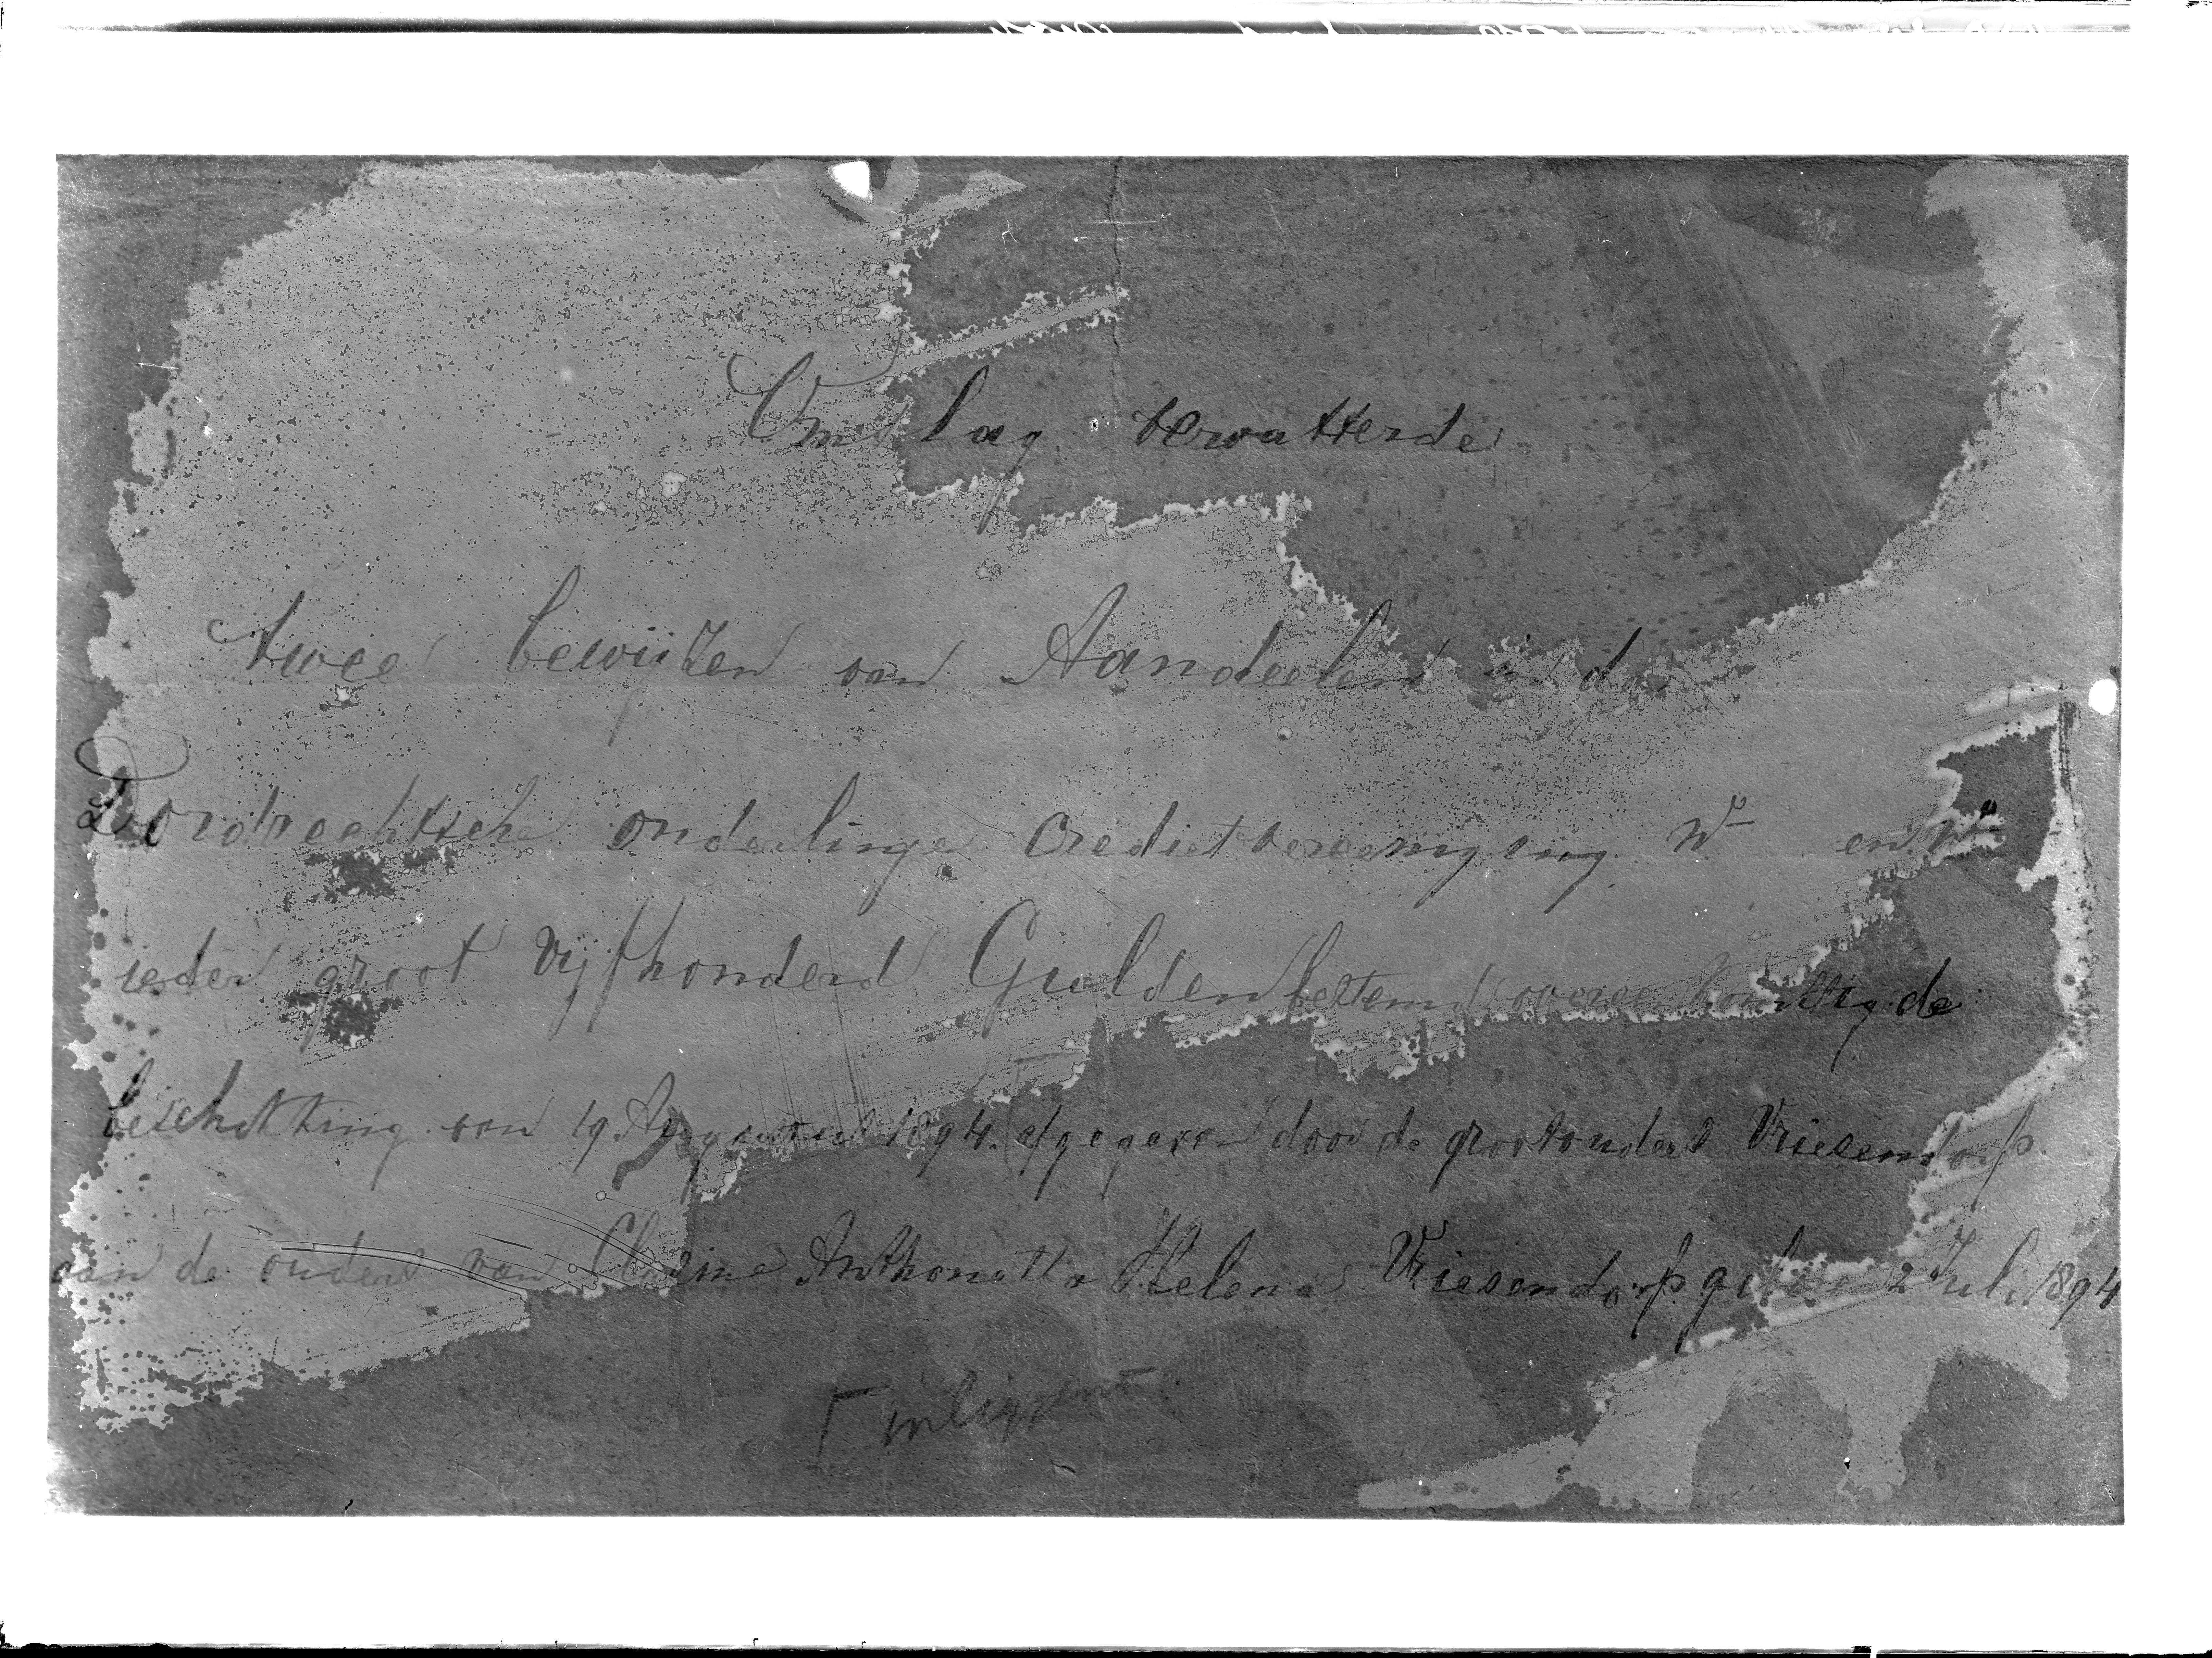 Omslag bevattende
twee bewijzen van Aandeelen in de
Dordrechtsche onderlinge Credietvereeniging No en No
ieder groot Vijfhonderd Gulden bestemd overeenkomstig de
beschikking van 19 Augustus 1894. afgegeven door de grootouders Vriesendorp
aan de ouders van Clasine Anthonetta Helena Vriesendorp geboren 2 Juli 1894